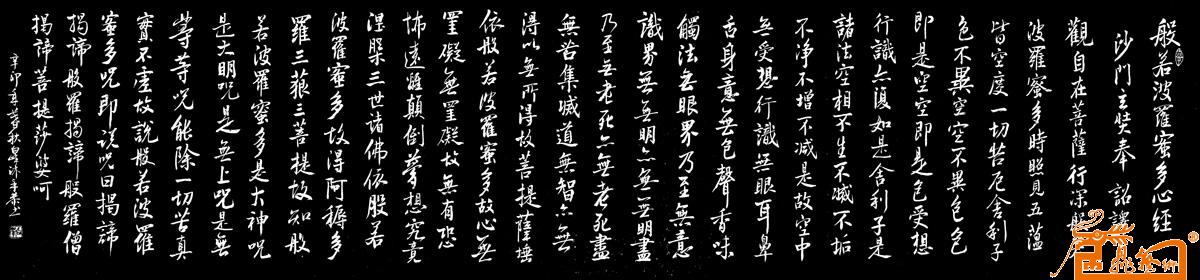 般若波羅蜜多心經
沙門玄奘奉 詔譯
觀自在菩薩行深般
波羅蜜多時照見五蘊
皆空度一切苦厄舍利子
色不異空空不異色色
即是空空即是色受想
行識亦復如是舍利子是
諸法空相不生不滅不垢
不淨不增不減是故空中
無受想行識無眼耳鼻
舌身意無色聲香味
觸法無眼界乃至無意
識界無無明亦無無明盡
乃至無老死亦無老死盡
無苦集滅道無智亦無
得以無所得故菩提薩埵
依般若波羅蜜多故心無
罣礙無罣礙故無有恐
怖遠離顛倒夢想究竟
涅槃三世諸佛依般若
波羅蜜多故得阿耨多
羅三藐三菩提故知般
若波羅蜜多是大神咒
是大明咒是無上咒是無
等等咒能除一切苦真
實不虛故說般若波羅
蜜多咒即說咒曰揭諦
揭諦般羅揭諦般羅僧
揭諦菩提莎婆呵
辛卯年